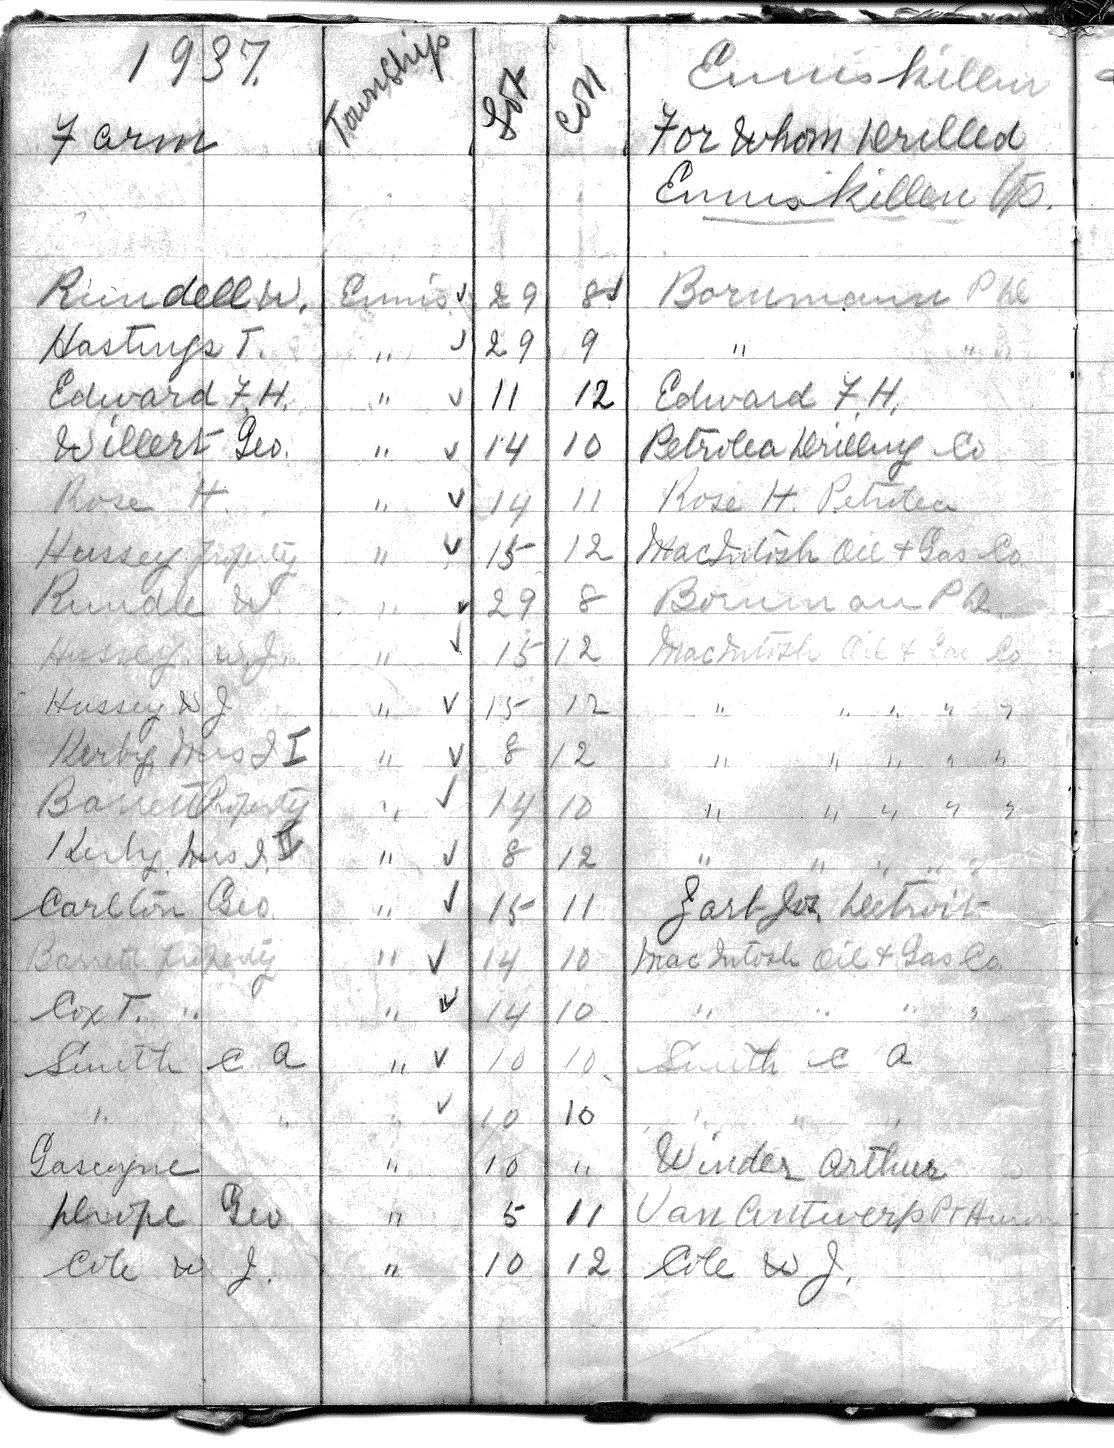 1937. Township Lot Con Enniskillen
Farm For Whom Drilled
Enniskillen Tp.
Rundell W. Ennis ✓ 29 8 ✓ Bornmann P
Hastings T. " ✓ 29 9 " "
Edward F.H. " ✓ 11 12 Edward F.H.
Willert Geo. " ✓ 14 10 Petrolea Drilling Co
Rose H. " ✓ 14 11 Rose H. Petrolea
Hussey Property " ✓ 15 12 MacIntosh Oil + Gas Co.
Rundle W. " ✓ 29 8 Bornman P
Hussey W.J. " ✓ 15 12 MacIntosh Oil + Gas Co
Hussey W J " ✓ 15 12 " " " " "
Kerby Mrs J I " ✓ 8 12 " " " " "
Barrett Property " ✓ 14 10 " " " " "
Kerby Mrs J. " ✓ 8 12 " " " " "
Carlton Geo. " ✓ 15 11 Jos. Detroit
Barrett Property " ✓ 14 10 MacIntosh Oil + Gas Co.
Cox T. " " ✓ 14 10 " " " "
Smith C A " ✓ 10 10 Smith C A
" " " ✓ 10 10 " " "
Gascoyne " 10 " Winder Arthur
Geo " 5 11 Van Antwerp Pt Huron
Cole W J. " 10 12 Cole W J.